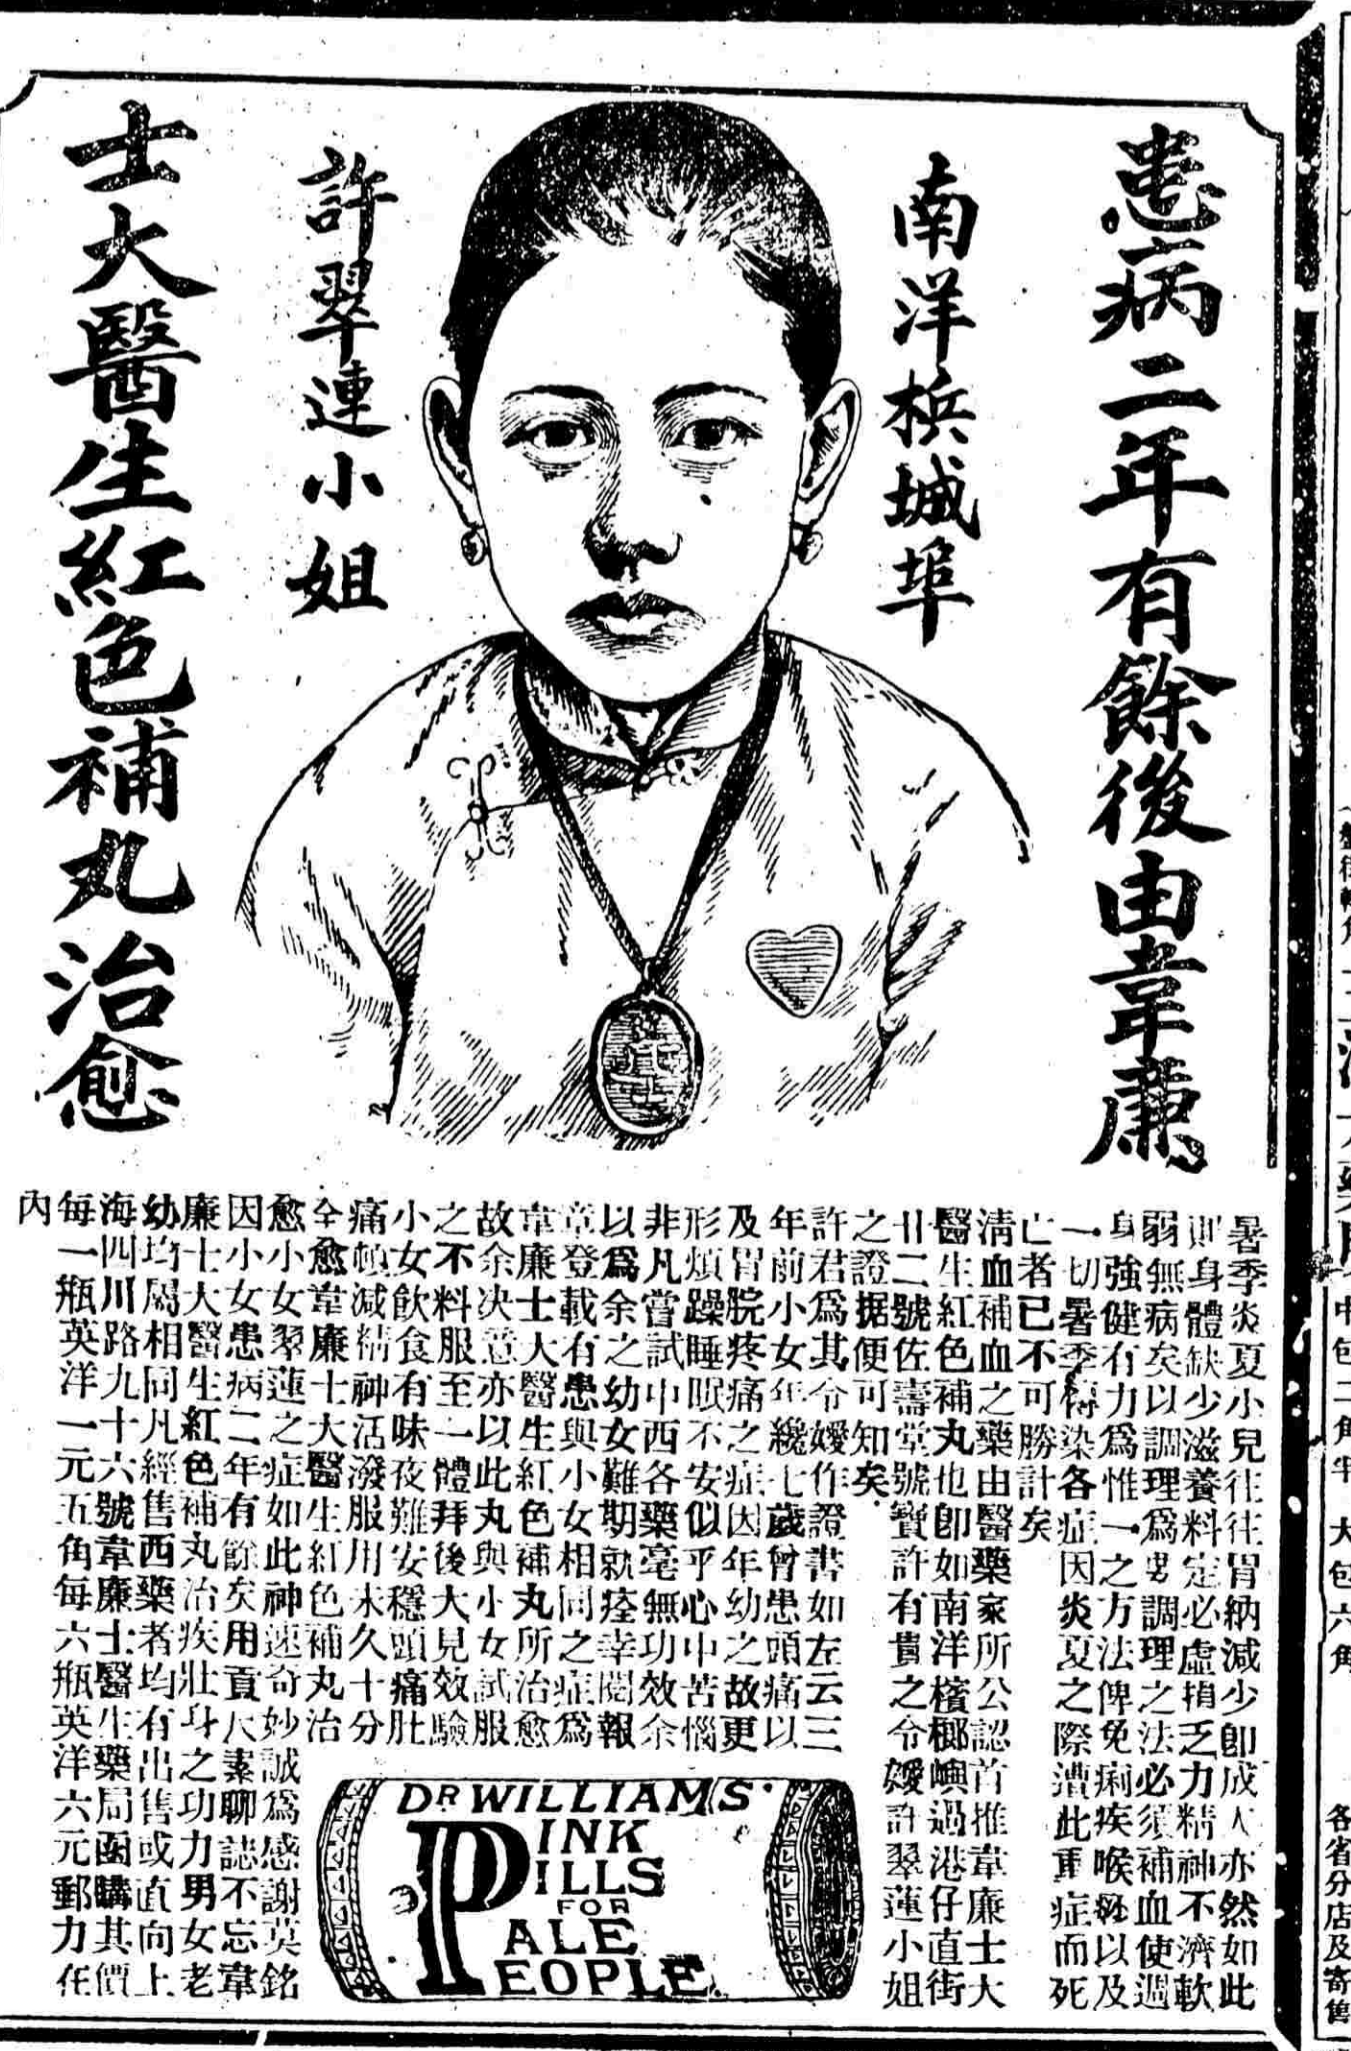 患病二年有餘後由韋廉
士大醫生紅色補丸治愈
南洋梹城埠
許翠連小姐
暑季炎夏小兒往往胃納減少卽成人亦然如此
則身體缺少滋養料定必虛損乏力精神不濟軟
弱無病矣以調理爲男調理之法必須補血使週
身強健有力爲惟一之方法俾免痢疾喉以及
一切暑季傳染各症因炎夏之際遭此重症而死
亡者已不可勝計矣
淸血補血之藥由醫藥家所公認首推韋廉士大
醫生紅色補丸也卽如南洋檳榔嶼過港仔直街
廿二號佐壽堂號寶許有貴之令嬡許翠蓮小姐
之證据便可知矣
許君爲其令嬡作證書如左云三
年前小女年纔七歲曾患頭痛以
及胃脘疼痛之症因年幼之故更
形煩躁睡眠不安似乎心中苦惱
非凡嘗試中西各藥毫無功效余
以爲余之幼女難期就痊幸閱報
章登載有患與小女相同之症爲
韋廉士大醫生紅色補丸所治愈
故余决意亦以此丸與小女試服
之不料服至一體拜後大見效驗
小女飲食有味夜難安穩頭痛肚
痛頓減精神活潑服用未久十分
全愈韋廉士大醫生紅色補丸治
愈小女翠蓮之症如此神速奇妙誠爲感謝英銘
因小女患病二年有餘矣用貢尺素聊誌不忘韋
廉士大醫生紅色補丸治疾壯身之功力男女老
幼均屬相同凡經售西藥者均有出售或直向上
海四川路九十六號韋廉士醫生藥局函購其價
每一瓶英洋一元五角每六瓶英洋六元郵力在
內
DR WILLIAMS'
PINK
PILLS
FOR
PALE
PEOPLE
中包二角半 大包六角
各省分店及寄售